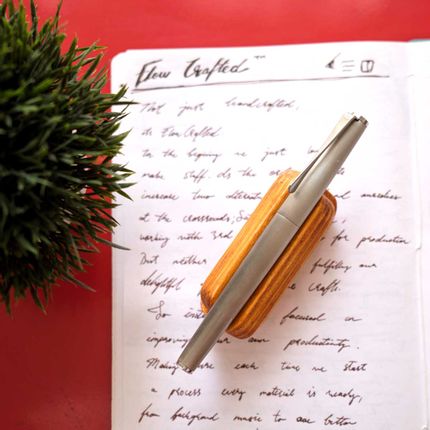 Flow Crafted™
Not just handcrafted,
its FlowCrafted
In the begining we just
make stuff. As the
increase two ourselves
at the crossroads,
working with 3rd for production
But neither fulfiling our
delightful crafts.
So focused on
improving our own productivity.
Making sure each time we start
a process every material is ready,
from background music to our better